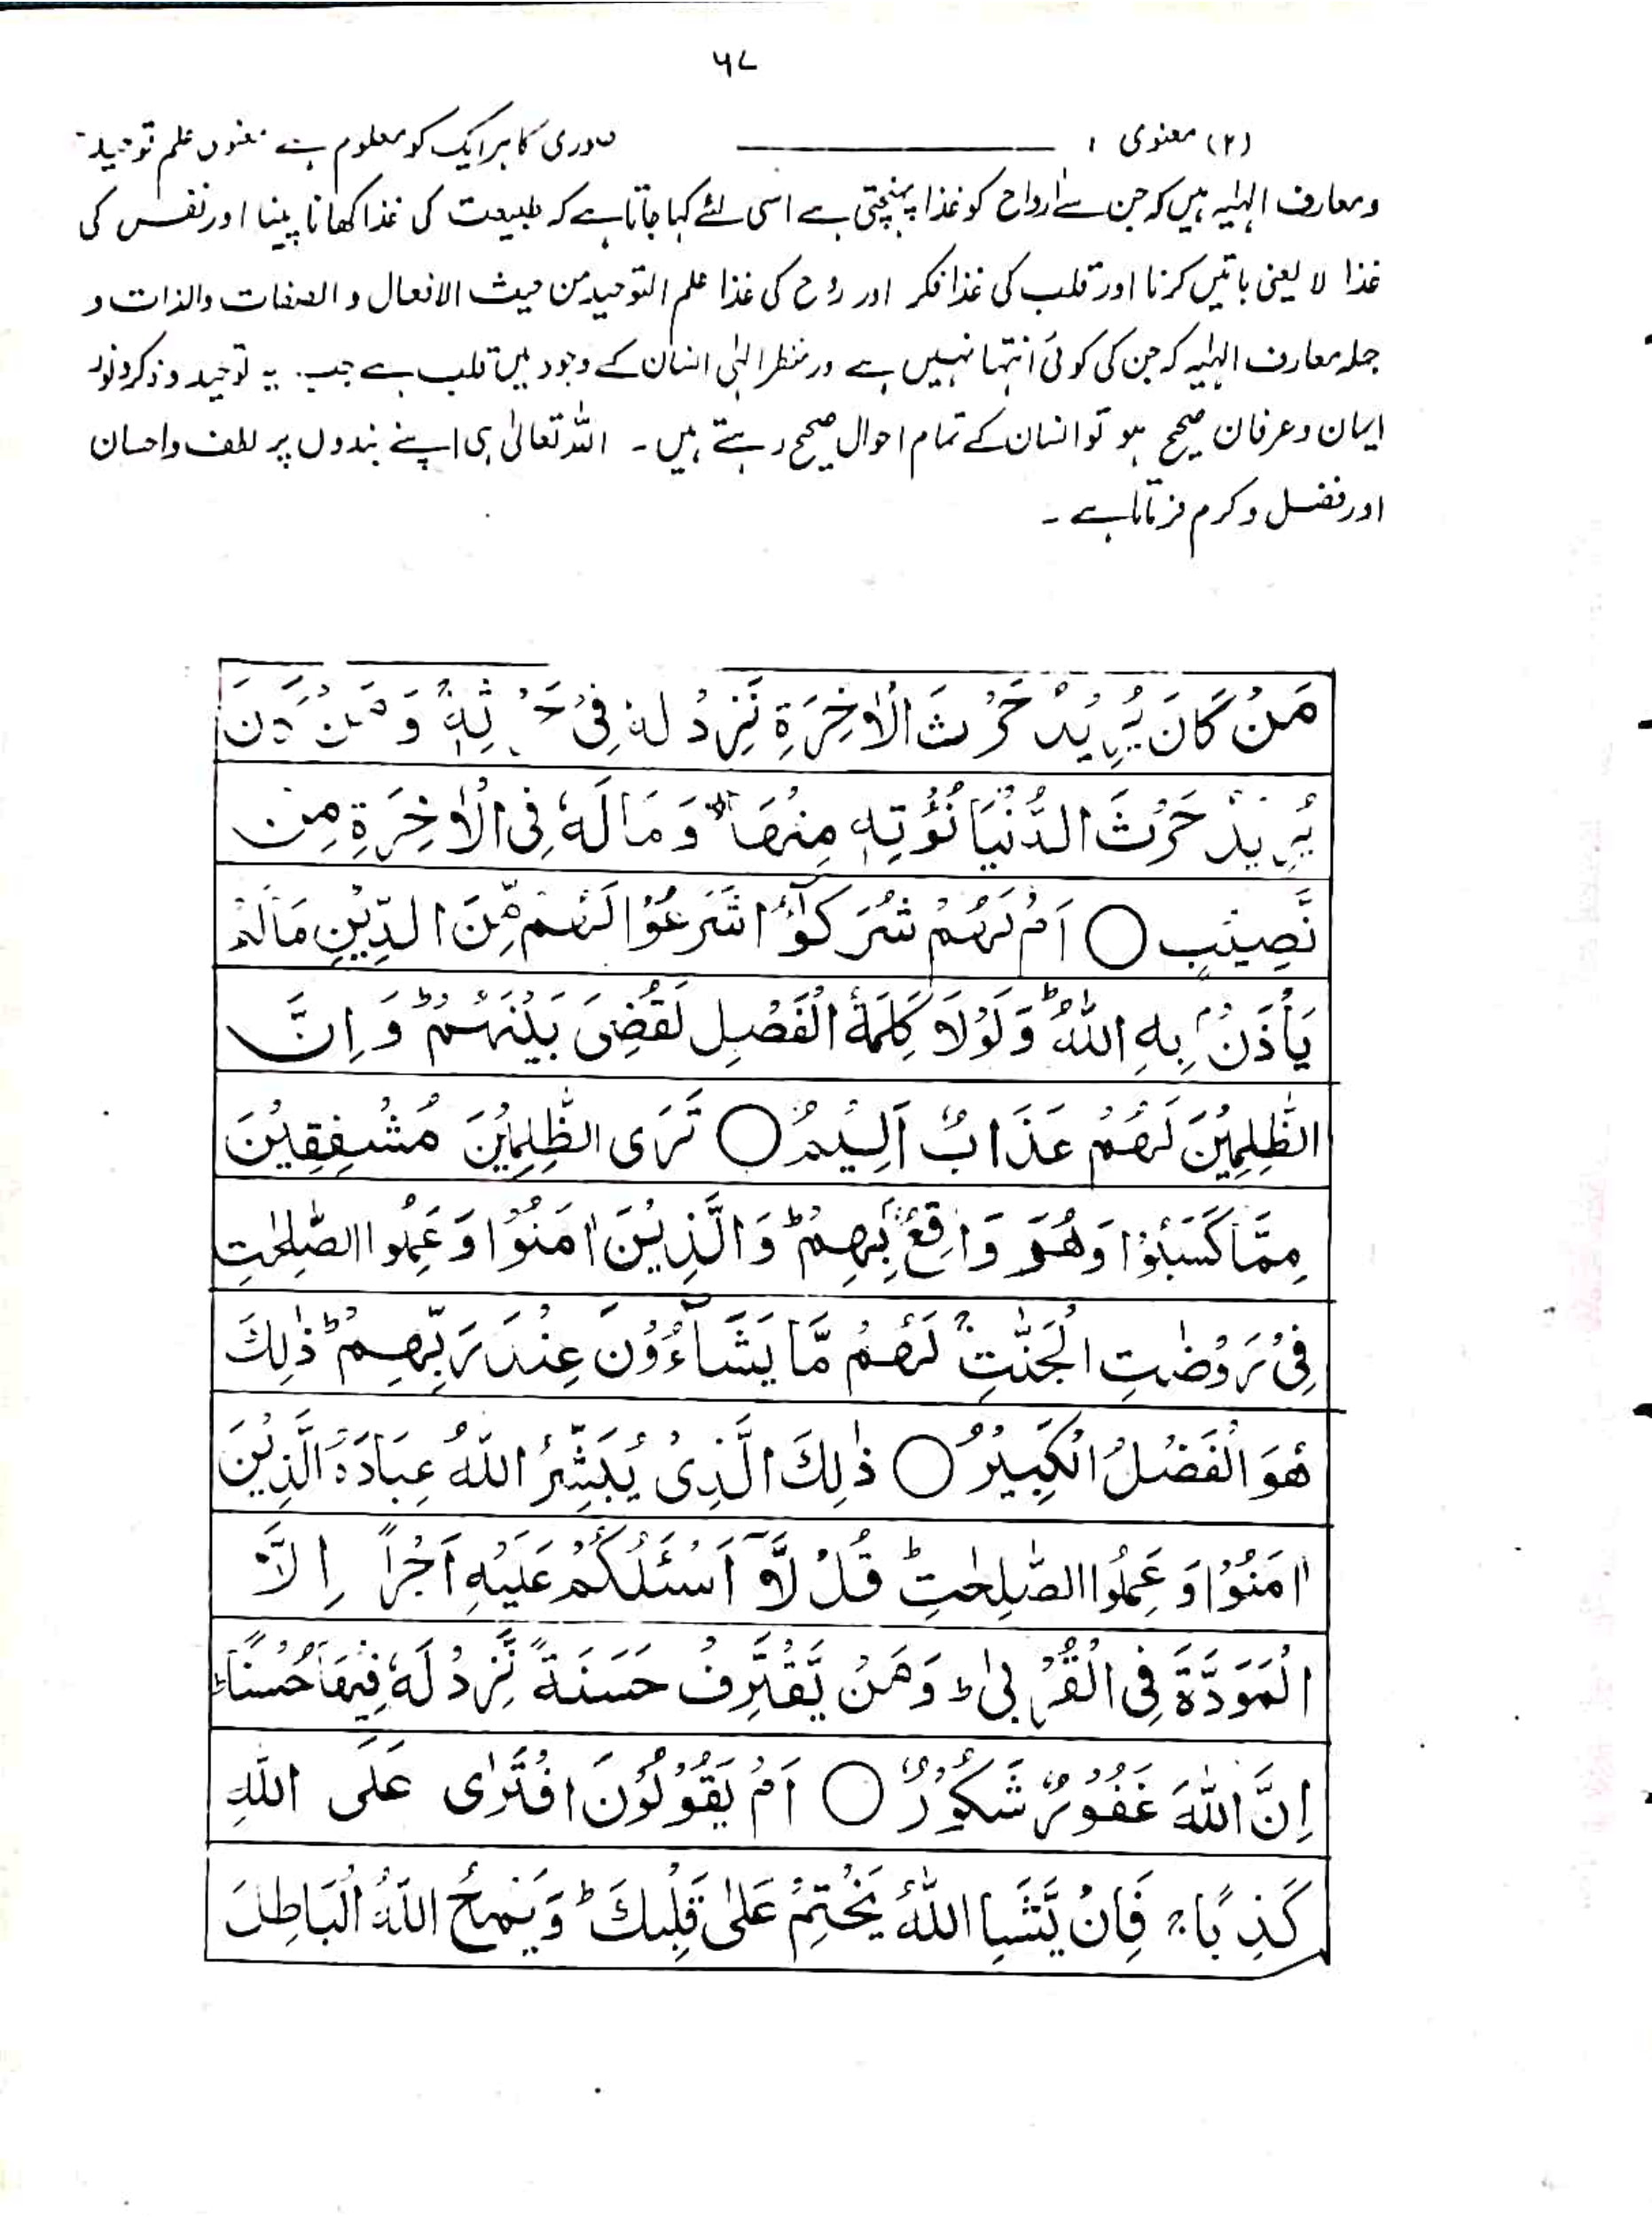 ۵۷
(۲) معنوی : ــــــــــــــــ صوری کا ہر ایک کو معلوم ہے معنوں علم توحید
ومعارف الہٰیہ ہیں کہ جن سے ارواح کو غذا پہنچتی ہے اسی لئے کہا جاتا ہے کہ طبیعت کی غذا کھانا پینا اور نفس کی
غذا لا یعنی باتیں کرنا اور قلب کی غذا فکر اور روح کی غذا علم التوحید من حیث الافعال و الصفات والذات و
جملہ معارف الہٰیہ کہ جن کی کوئی انتہا نہیں ہے ورمنظر الہٰی انسان کے وجود میں قلب ہے جب یہ توحید و ذکر و نور
ایمان و عرفان صحیح ہو تو انسان کے تمام احوال صحیح رہتے ہیں ۔ اللہ تعالیٰ ہی اپنے بندوں پر لطف و احسان
اور فضل و کرم فرماتا ہے ۔
مَنْ كَانَ يُرِيْدُ حَرْثَ الْاٰخِرَةِ نَزِدْ لَهٗ فِىْ حَرْثِهٖ وَمَنْ كَانَ
يُرِيْدُ حَرْثَ الدُّنْيَا نُؤْتِهٖ مِنْهَا وَمَا لَهٗ فِى الْاٰخِرَةِ مِنْ
نَّصِيْبٍ ○ اَمْ لَهُمْ شُرَكٰٓؤُا شَرَعُوْا لَهُمْ مِّنَ الدِّيْنِ مَا لَمْ
يَأْذَنْۢ بِهِ اللّٰهُ ؕ وَلَوْلَا كَلِمَةُ الْفَصْلِ لَقُضِىَ بَيْنَهُمْ ؕ وَاِنَّ
الظّٰلِمِيْنَ لَهُمْ عَذَابٌ اَلِيْمٌ ○ تَرَى الظّٰلِمِيْنَ مُشْفِقِيْنَ
مِمَّا كَسَبُوْا وَهُوَ وَاقِعٌۢ بِهِمْ ؕ وَالَّذِيْنَ اٰمَنُوْا وَعَمِلُوا الصّٰلِحٰتِ
فِىْ رَوْضٰتِ الْجَنّٰتِ ۚ لَهُمْ مَّا يَشَآءُوْنَ عِنْدَ رَبِّهِمْ ؕ ذٰلِكَ
هُوَ الْفَضْلُ الْكَبِيْرُ ○ ذٰلِكَ الَّذِىْ يُبَشِّرُ اللّٰهُ عِبَادَهُ الَّذِيْنَ
اٰمَنُوْا وَعَمِلُوا الصّٰلِحٰتِ ؕ قُلْ لَّآ اَسْئَلُكُمْ عَلَيْهِ اَجْرًا اِلَّا
الْمَوَدَّةَ فِى الْقُرْبٰى ؕ وَمَنْ يَّقْتَرِفْ حَسَنَةً نَّزِدْ لَهٗ فِيْهَا حُسْنًا ؕ
اِنَّ اللّٰهَ غَفُوْرٌ شَكُوْرٌ ○ اَمْ يَقُوْلُوْنَ افْتَرٰى عَلَى اللّٰهِ
كَذِبًا ۚ فَاِنْ يَّشَاِ اللّٰهُ يَخْتِمْ عَلٰى قَلْبِكَ ؕ وَيَمْحُ اللّٰهُ الْبَاطِلَ